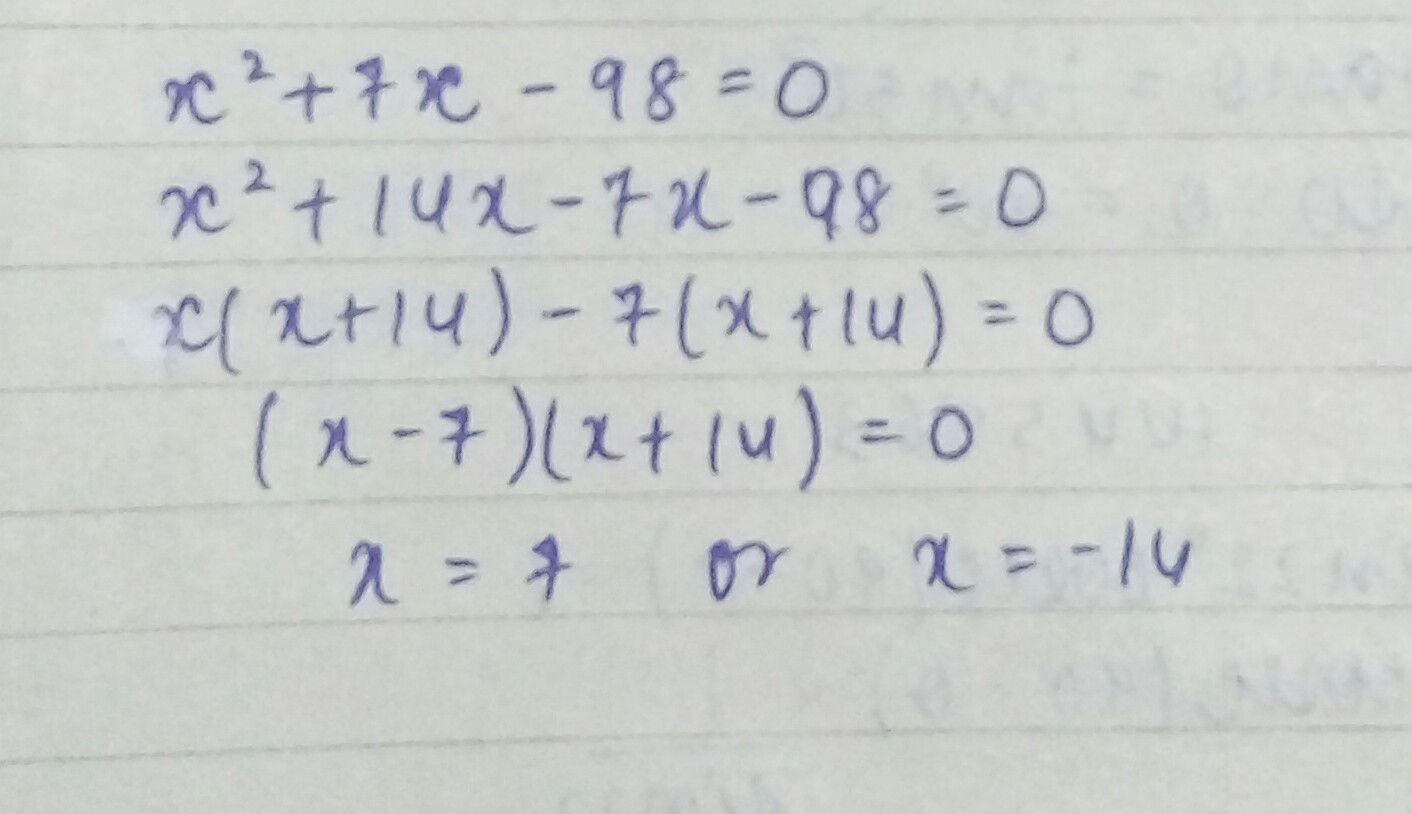 x² + 7x - 98 = 0
x² + 14x - 7x - 98 = 0
x(x+14) - 7(x+14) = 0
(x-7)(x+14) = 0
x = 7 or x = -14